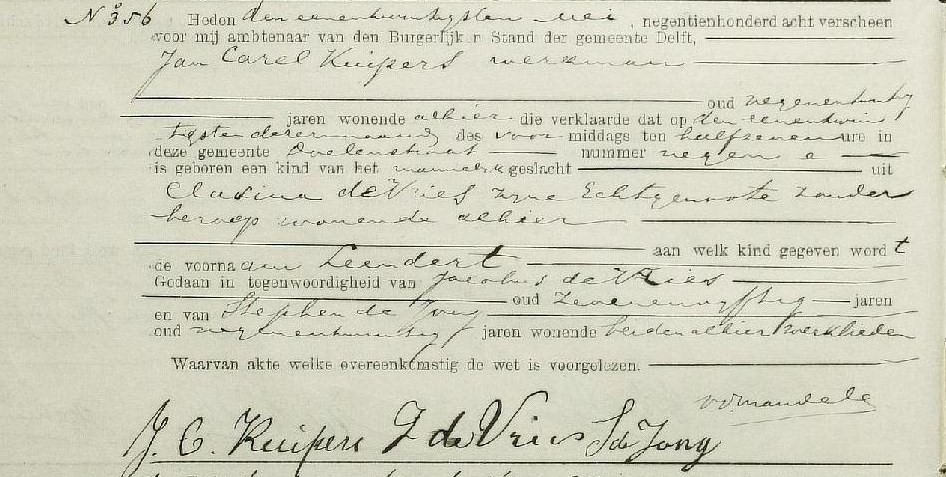 No 356 Heden den eenentwintigsten mei, negentienhonderd acht verscheen
voor mij ambtenaar van den Burgerlijken Stand der gemeente Delft,
Jan Carel Kuipers werkman
oud negenentwintig
jaren wonende alhier die verklaarde dat op den eenentwin
tigsten dezer maand des voor middags ten half zeven ure in
deze gemeente Doelenstraat nummer negen a
is geboren een kind van het mannelijk geslacht uit
Clasina de Vries zijne Echtgenoote zonder
beroep wonende alhier
aan welk kind gegeven wordt
de voornaam Leendert
Gedaan in tegenwoordigheid van Jacobus de Vries
oud zevenenvyftig jaren
en van Stephen de Jong
oud negenentwintig jaren wonende beiden alhier werklieden
Waarvan akte welke overeenkomstig de wet is voorgelezen.
J. C. Kuipers J de Vries S d Jong